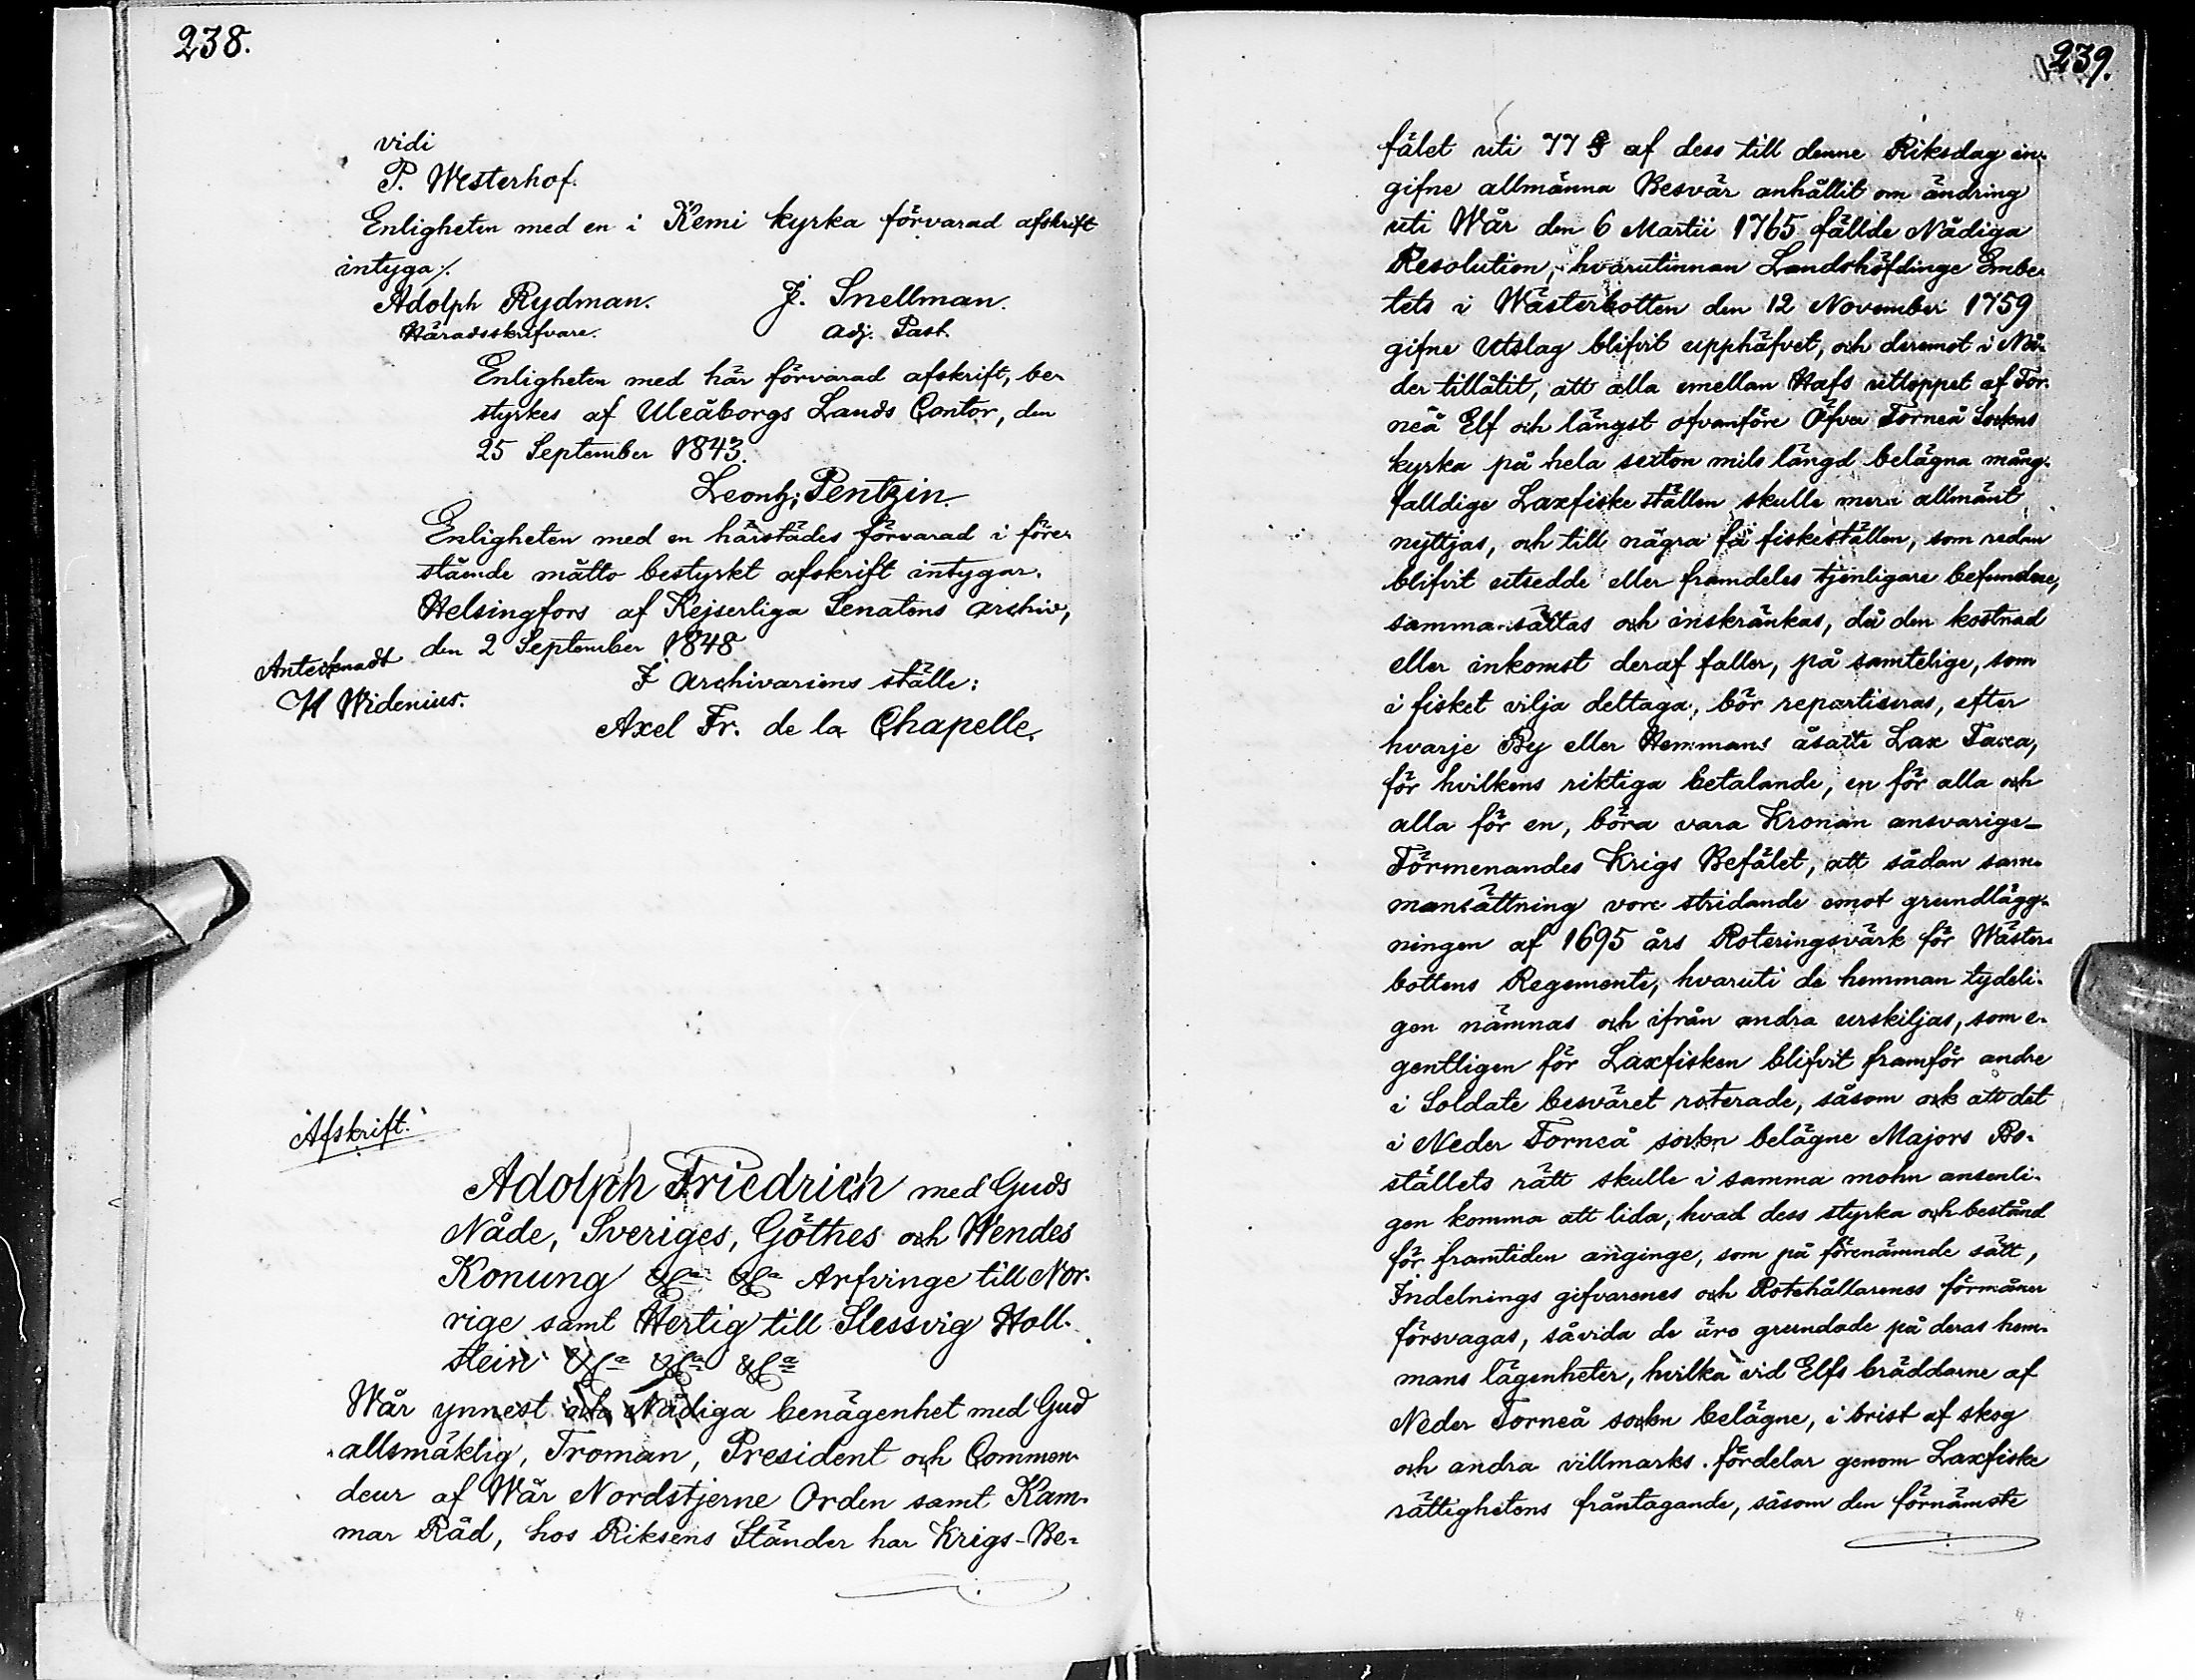 238.
vidi
P. Westerhof.
Enligheten med en i Kemi kyrka förvarad afskrift
intyga/.
Adolph Rydman. J. Snellman.
Häradsskrifvare. Adj. Past.
Enligheten med här förvarad afskrift, be-
styrkes af Uleåborgs Lands Contor, den
25 September 1843.
Leontz; Pentzin.
Enligheten med en härstädes förvarad i före-
stående måtto bestyrkt afskrift intygar.
Helsingfors af Kejserliga Senatens archiv,
den 2 September 1848
Antecknadt
I Archivariens ställe:
H Widenius.
Axel Fr. de la Chapelle.
Afskrift.
Adolph Friedrich med Guds
Nåde, Sveriges, Göthes och Wendes
Konung &c &c Arfvinge till Nor-
rige samt Hertig till Slessvig Holl-
stein &c &c &c
Wår ynnest och Nådiga benägenhet med Gud
allsmäktig, Troman, President och Commen-
deur af Wår Nordstjerne Orden samt Kam-
mar Råd, hos Riksens Ständer har Krigs-Be-
239.
fälet uti 77 § af dess till denne Riksdag in-
gifne allmänna Besvär anhållit om ändring
uti Wår den 6 Martii 1765 fällde Nådiga
Resolution, hvarutinnan Landshöfdinge Embe-
tets i Wästerbotten den 12 November 1759
gifne Utslag blifvit upphäfvet, och deremot i Nå-
der tillåtit, att alla emellan Hafs utloppet af Tor-
neå Elf och längst ofvanföre Öfver Torneå Sockens
kyrka på hela sexton mils längd belägna mång-
falldige Laxfiske ställen skulle mera allmänt
nyttjas, och till några få fiskeställen, som redan
blifvit utsedde eller framdeles tjenligare befundne,
samma sättas och inskränkas, då den kostnad
eller inkomst deraf faller, på samtelige, som
i fisket vilja deltaga, bör repartiseras, efter
hvarje By eller Hemmans åsatte Lax Taxa,
för hvilkens riktiga betalande, en för alla och
alla för en, böra vara Kronan ansvarige_
Förmenandes Krigs Befälet, att sådan sam-
mansättning vore stridande emot grundlägg-
ningen af 1695 års Roteringsvärk för Wäster-
bottens Regemente, hvaruti de hemman tydeli-
gen nämnas och ifrån andra urskiljas, som e-
gentligen för Laxfisken blifvit framför andre
i Soldate besväret roterade, såsom ock att det
i Neder Torneå socken belägne Majors Bo-
ställets rätt skulle i samma mohn ansenli-
gen komma att lida, hvad dess styrka och bestånd
för framtiden anginge, som på förenämnde sätt,
Indelnings gifvarenes och Rotehållarenes förmåner
försvagas, såvida de äro grundade på deras hem-
mans lägenheter, hvilka vid Elfs bräddarne af
Neder Torneå socken belägne, i brist af skog
och andra villmarks fördelar genom Laxfiske
rättighetens fråntagande, såsom den förnämste